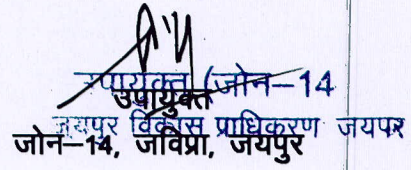 उपायुक्त (जोन-14
उपायुक्त
जयपुर विकास प्राधिकरण जयपुर
जोन-14, जविप्रा, जयपुर